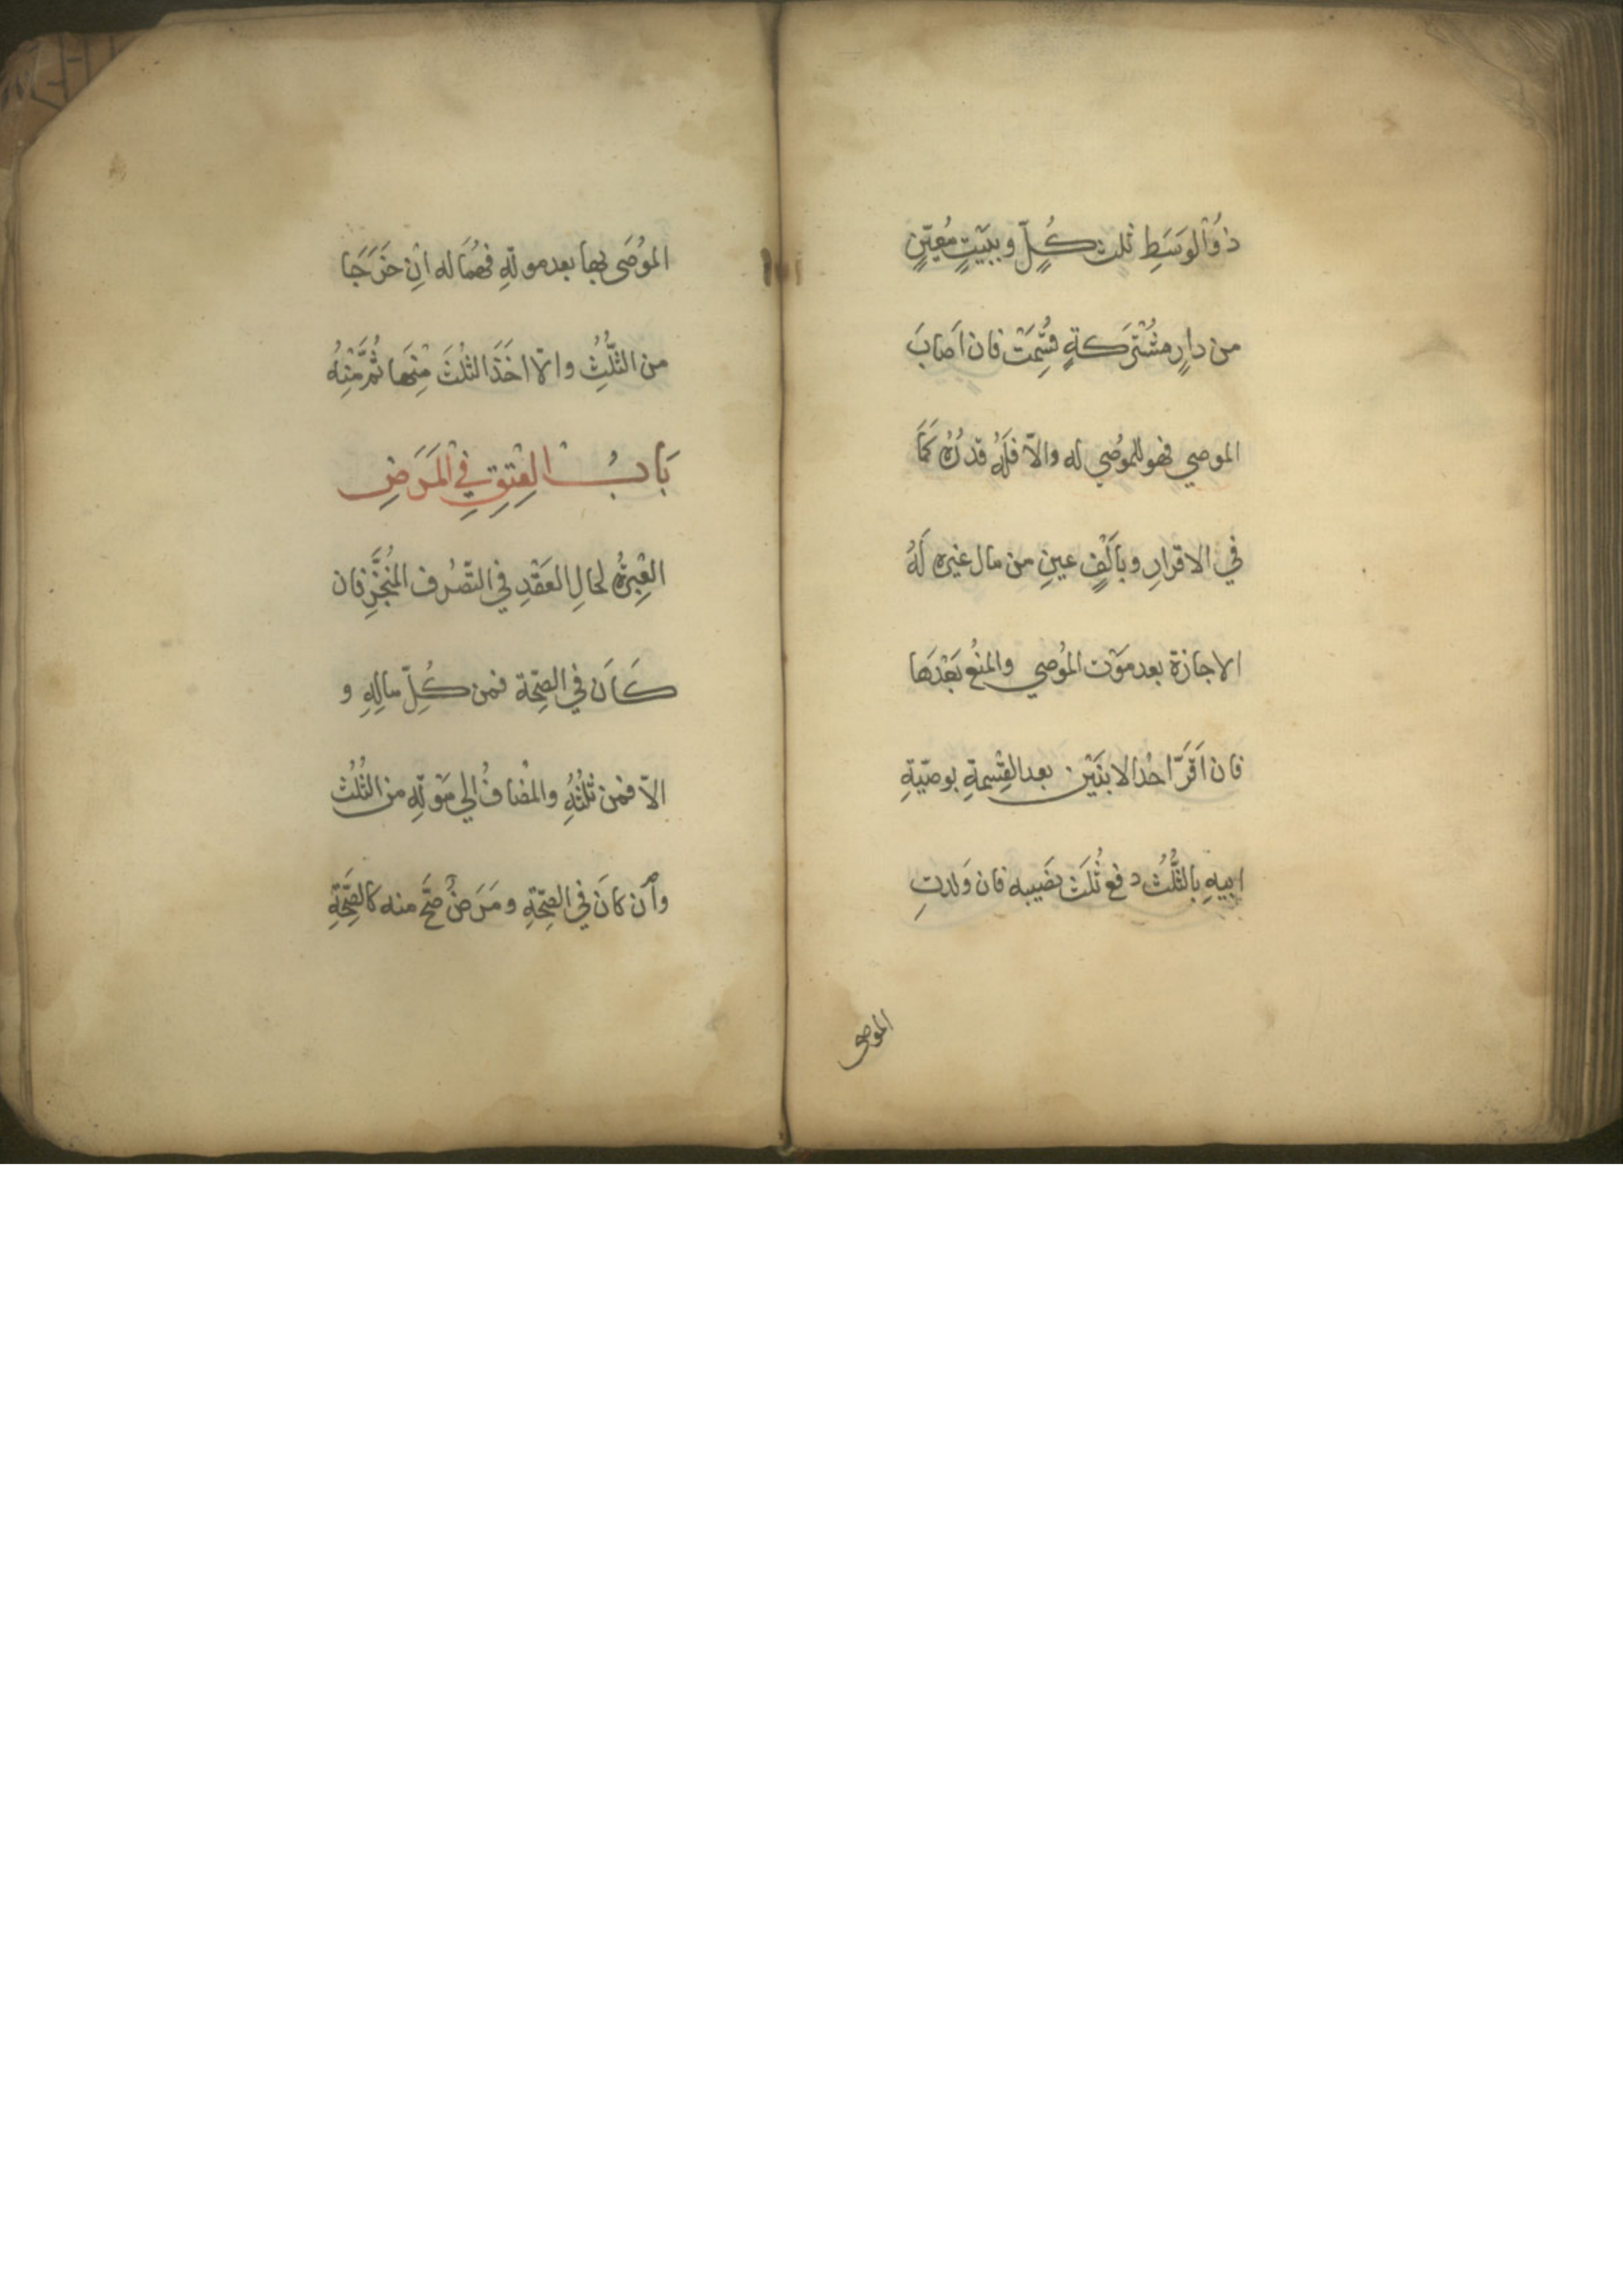 ذُو الوَسَطِ ثلث كُلٍّ وببَيْتٍ مُعيّنٍ
من دارٍ مشْتَركةٍ قُسِّمَتْ فان اَصابَ
الموصي فهو للموُصٰي له والاّ فلَهُ قدرُهُ كَمَا
في الاقرارِ وبأَلْفٍ عينٍ من مال غيره لَهُ
الاجازة بعد موْت الموُصي والمنْع بَعْدَها
فان اَقَرَّ احُد الابنَيْن بعد القِسْمةِ بوصيّةِ
ابيهِ بالثُّلُث دفع ثُلَثَ نصَيبه فان وَلدتِ
الموصى
الموُصَى بها بعد موتِهِ فهُمَا له اِنْ خرَجَا
من الثُّلُثِ والاّ اخَذَ الثلُثَ مِنْها ثُمَّ مْنِهُ
بَابُ الْعِتِقِ فِي الْمَرَضِ
العِبْرةُ لحالِ العَقْدِ في التصّرُف المُنَجَّزِ فان
كَانَ في الصِّحّة فمن كُلِّ مالِهِ و
الاّ فمن ثُلُثِهُ والمضَافُ الي مَوْتِهِ من الثُلُث
وأن كانَ في الصِحّةِ ومَرَضٌ صَحَّ منه كالصِّحَّةِ